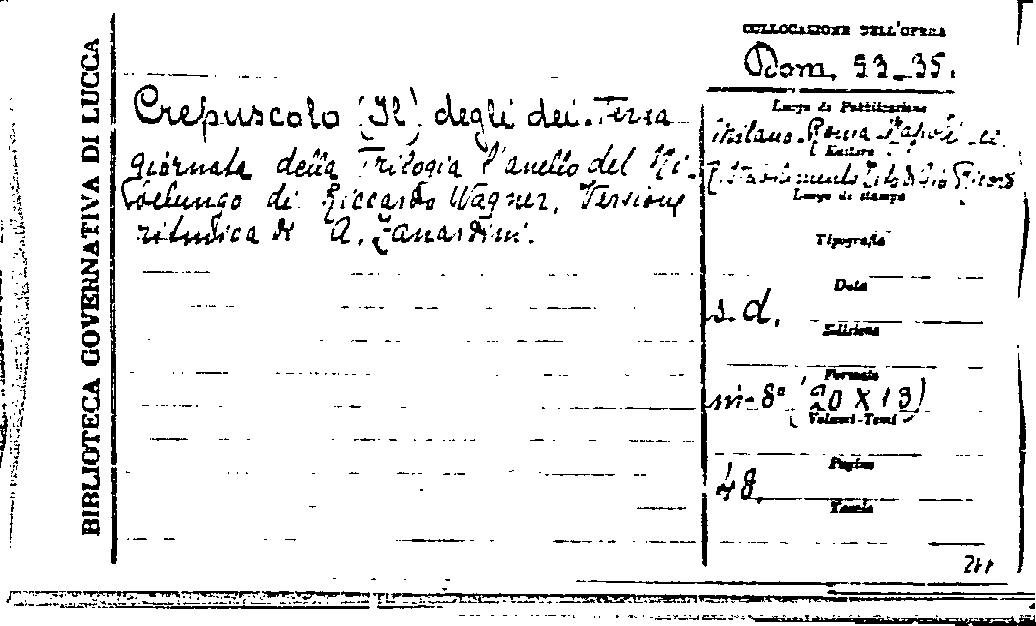 BIBLIOTECA GOVERNATIVA DI LUCCA
Crepuscolo (Il) degli dei. Terza
giornata della Trilogia l'anello del Ni-
belungo di Riccardo Wagner. Versione
ritmica di A. Zanardini.
COLLOCAZIONE DELL'OPERA
Dom. 53-35.
Luogo di Pubblicazione
Milano-Roma Napoli ec.
Editore
R. Stabilimento Tito di Gio Ricordi
Luogo di stampa
Tipografia
Data
s. d.
Edizione
Formato
in-8° (20 X 13)
Volumi-Tomi
Pagine
48.
Tavole